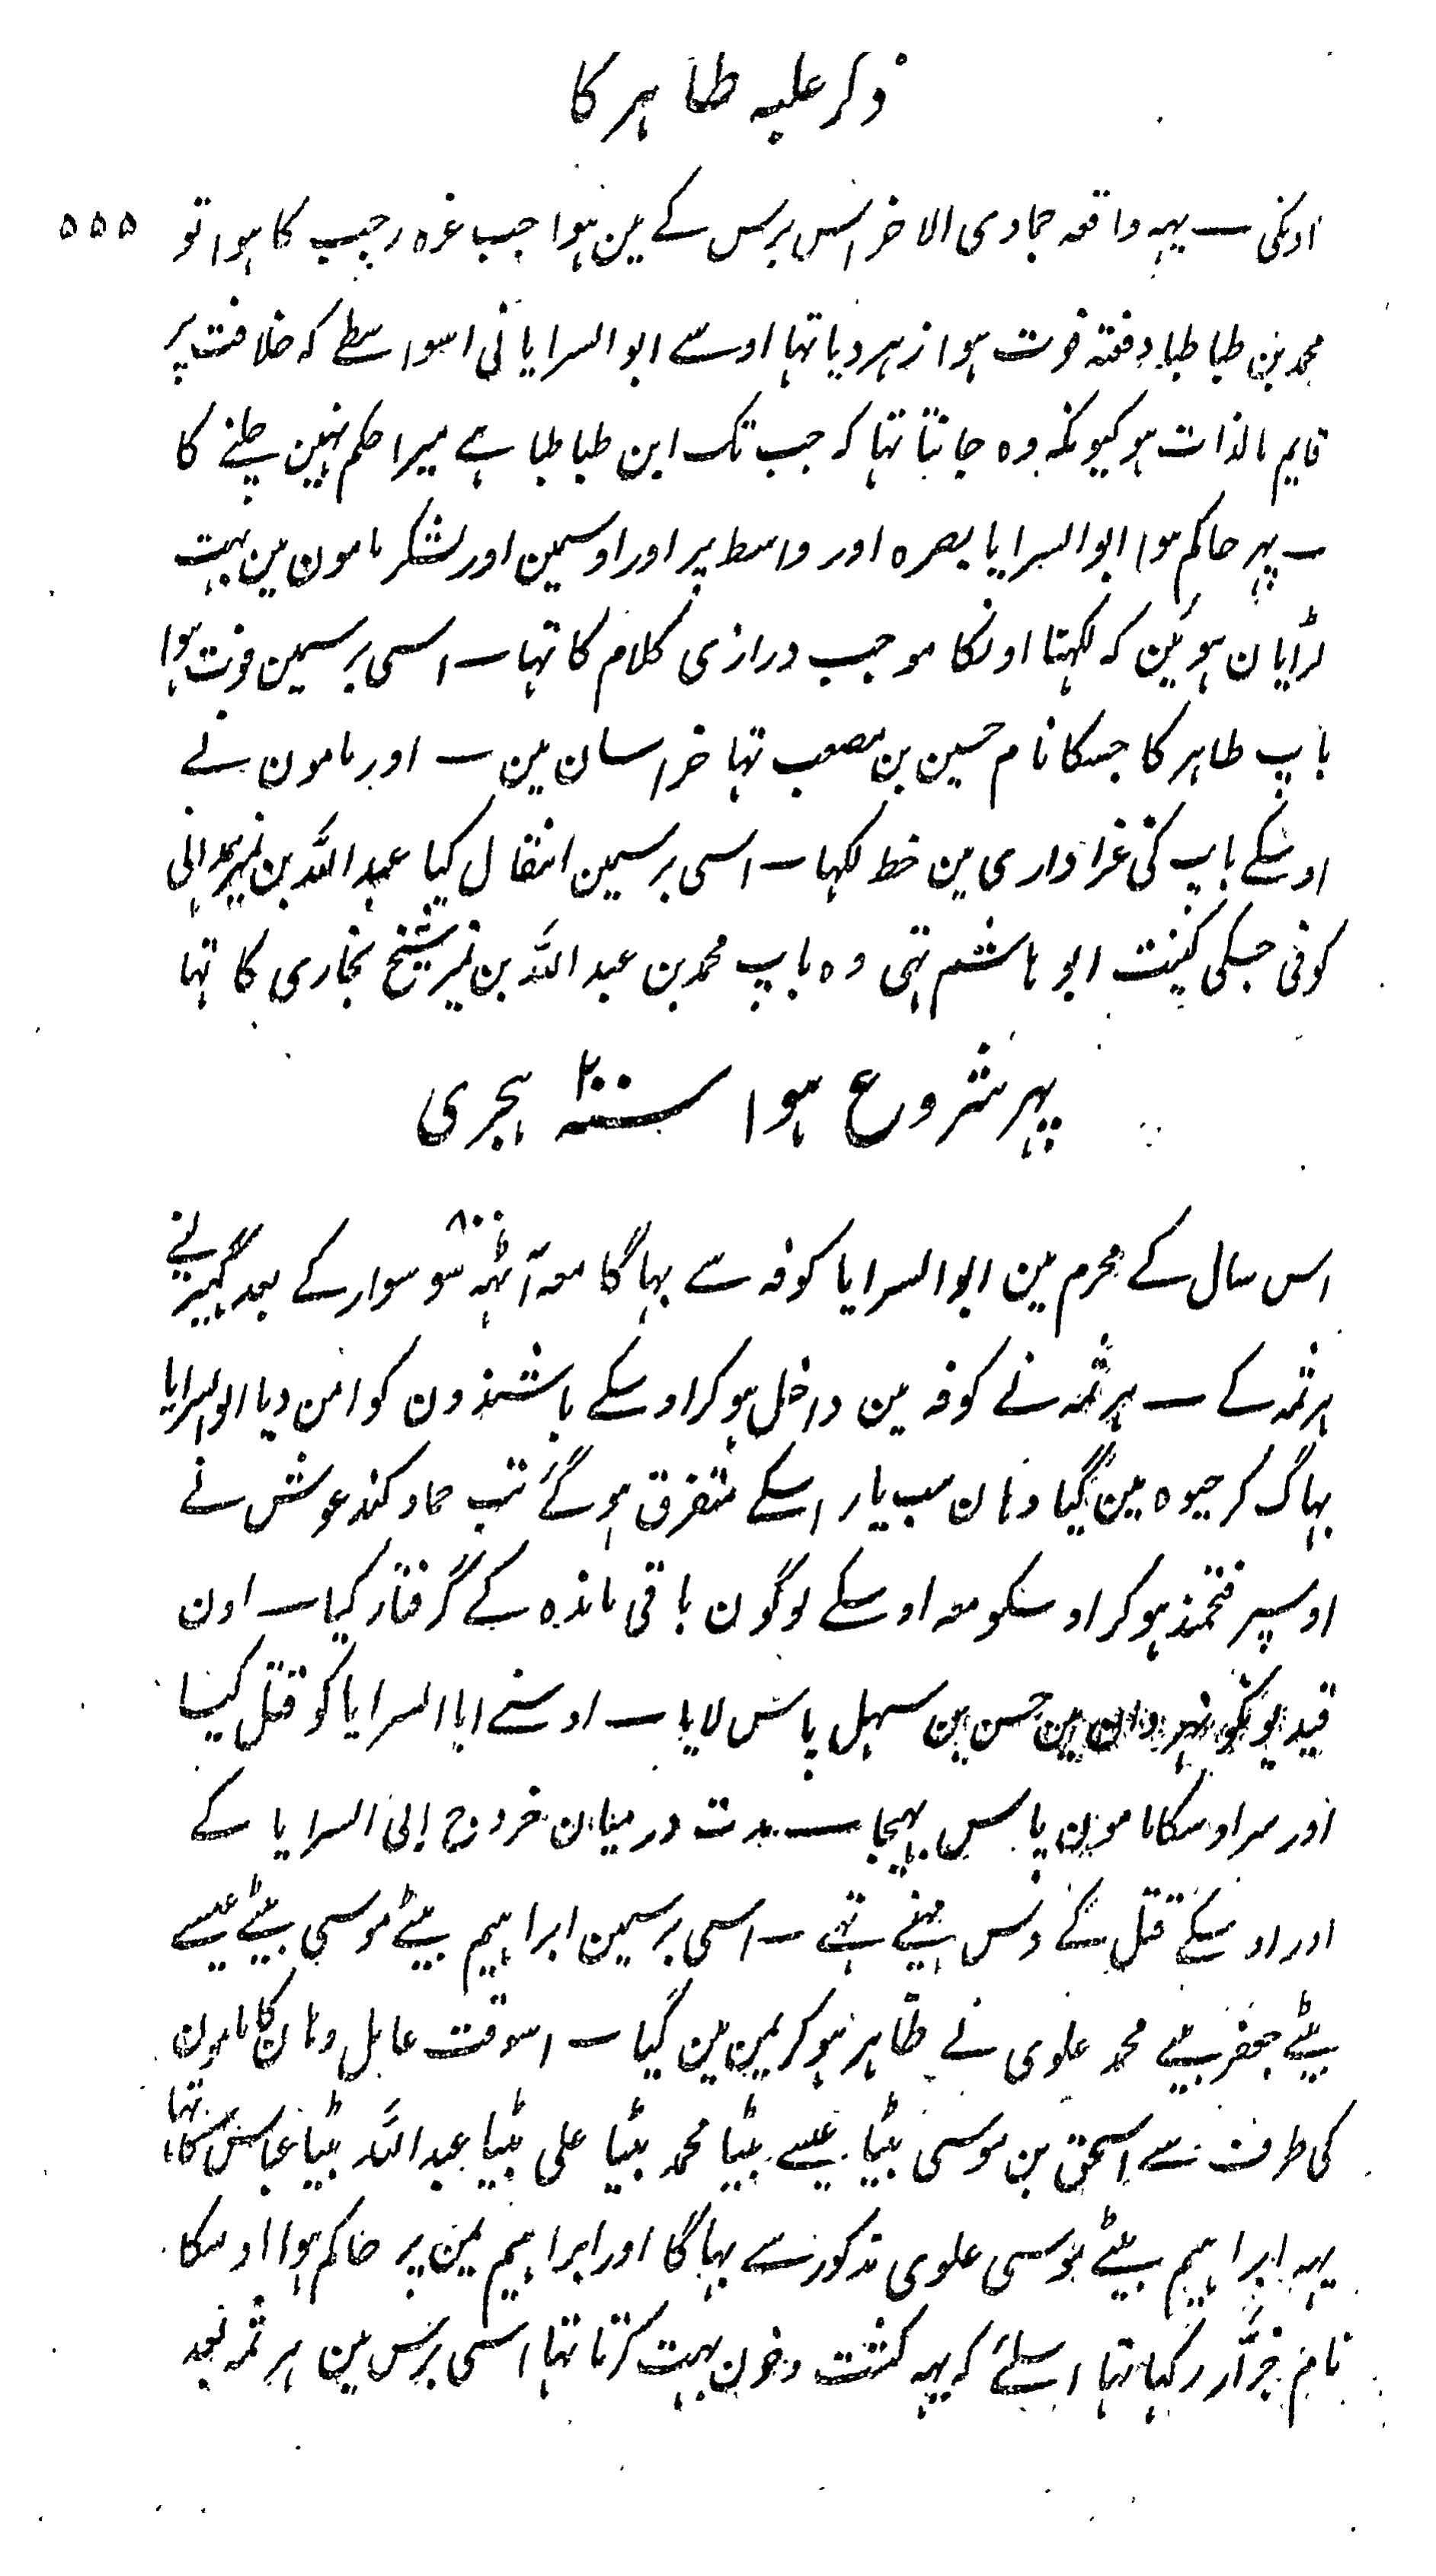 ذکر غلبہ طاہر کا
۵۵۵
اونکی ــ یہہ واقعہ جمادی الاخر اس برس کے مین ہوا جب غرہ رجب کا ہوا تو
محمد بن طباطبا دفعتہ فوت ہوا زہر دیا تہا اوسے ابو السرایا نی اسواسطے کہ خلافت پر
قایم بالذات ہو کیونکہ وہ جانتا تہا کہ جب تک ابن طباطبا ہے میرا حکم نہین چلنے کا
ــ پہر حاکم ہوا ابو السرایا بصرہ اور واسط پر اور اوسمین اور لشکر مامون مین بہت
لڑایان ہوئین کہ لکہنا اونکا موجب درازی کلام کا تہا ــ اسی برسمین فوت ہوا
باپ طاہر کا جسکا نام حسین بن مصعب تہا خراسان مین ــ اور مامون نے
اوسکے باپ کی عزاداری مین خط لکہا ــ اسی برسمین انتقال کیا عبد اللہ بن نمیر ہمدانی
کوفی جسکی کنیت ابو ہاشم تہی وہ باپ محمد بن عبد اللہ بن نمیر شیخ بخاری کا تہا
پہر شروع ہوا سنہ ۲۰۰ ہجری
اس سال کے محرم مین ابو السرایا کوفہ سے بہاگا معہ آٹہہ سو ۸۰۰ سوار کے بعد گہیرنے
ہرثمہ کے ــ ہرثمہ نے کوفہ مین داخل ہو کر اوسکے باشندون کو امن دیا ابو السرایا
بہاگ کر جیوہ مین گیا وہان سب یار اسکے متفرق ہو گئے تب حماد کندعوش نے
اوسپر فتحمند ہو کر اوسکو معہ اوسکے لوگون باقی ماندہ کے گرفتار کیا ــ اون
قیدیونکو نہروان مین حسن بن سہل پاس لایا ــ اوسنے ابا السرایا کو قتل کیا
اور سر اوسکا مامون پاس بہیجا ــ مدت درمیان خروج ابی السرایا کے
اور اوسکے قتل کے دس مہینے تہے ــ اسی برسمین ابراہیم بیٹے موسی بیٹے عیسے
بیٹے جعفر بیٹے محمد علوی نے ظاہر ہو کر یمن مین گیا ــ اسوقت عامل وہان کا مامون
کی طرف سے اسحق بن موسی بیٹا عیسے بیٹا محمد بیٹا علی بیٹا عبد اللہ بیٹا عباس کا تہا
یہہ ابراہیم بیٹے موسی علوی مذکور سے بہاگا اور ابراہیم یمن پر حاکم ہوا اوسکا
نام جزّار رکہا تہا اسلئے کہ یہہ کشت و خون بہت کرتا تہا اسی برس مین ہرثمہ بعد